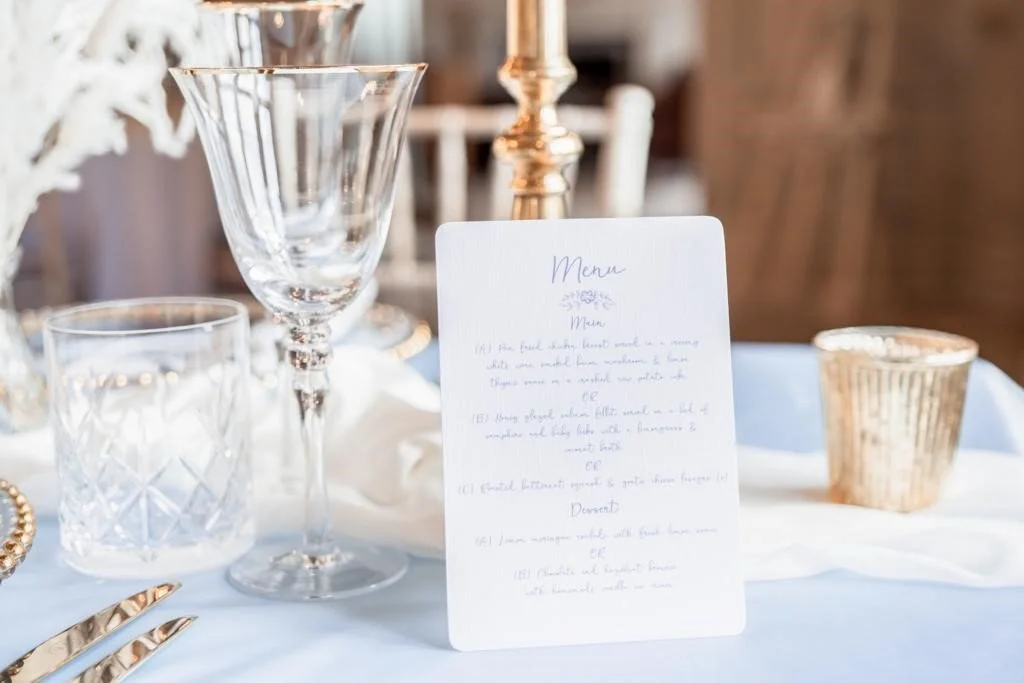 Menu
Main
(A) Pan fried chicken breast served in a creamy
white wine smoked bacon mushroom & lemon
thyme sauce on a crushed new potato cake
OR
(B) Honey glazed salmon fillet served on a bed of
samphire and baby leeks with a lemongrass &
broth
OR
(C) Roasted butternut squash & goats cheese lasagne (v)
Dessert
(A) Lemon meringue with fresh lemon
OR
(B) Chocolate and hazelnut brownie
with homemade vanilla ice cream